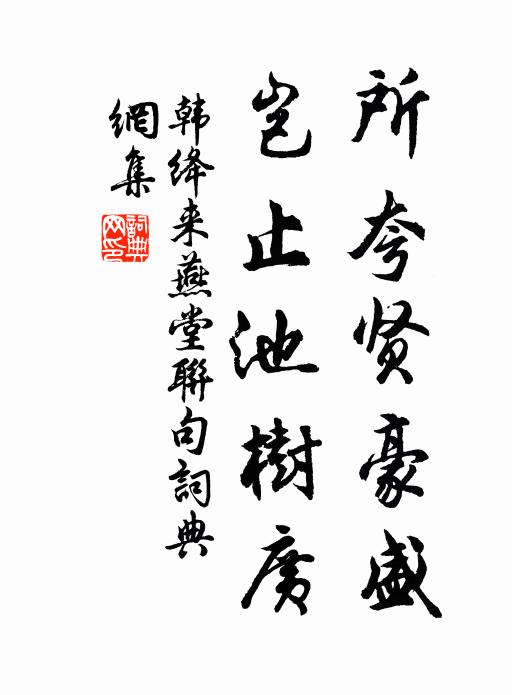 所夸贤豪盛
岂止池樹广
韩绛来燕堂聯句詞典
網集
詞典網印